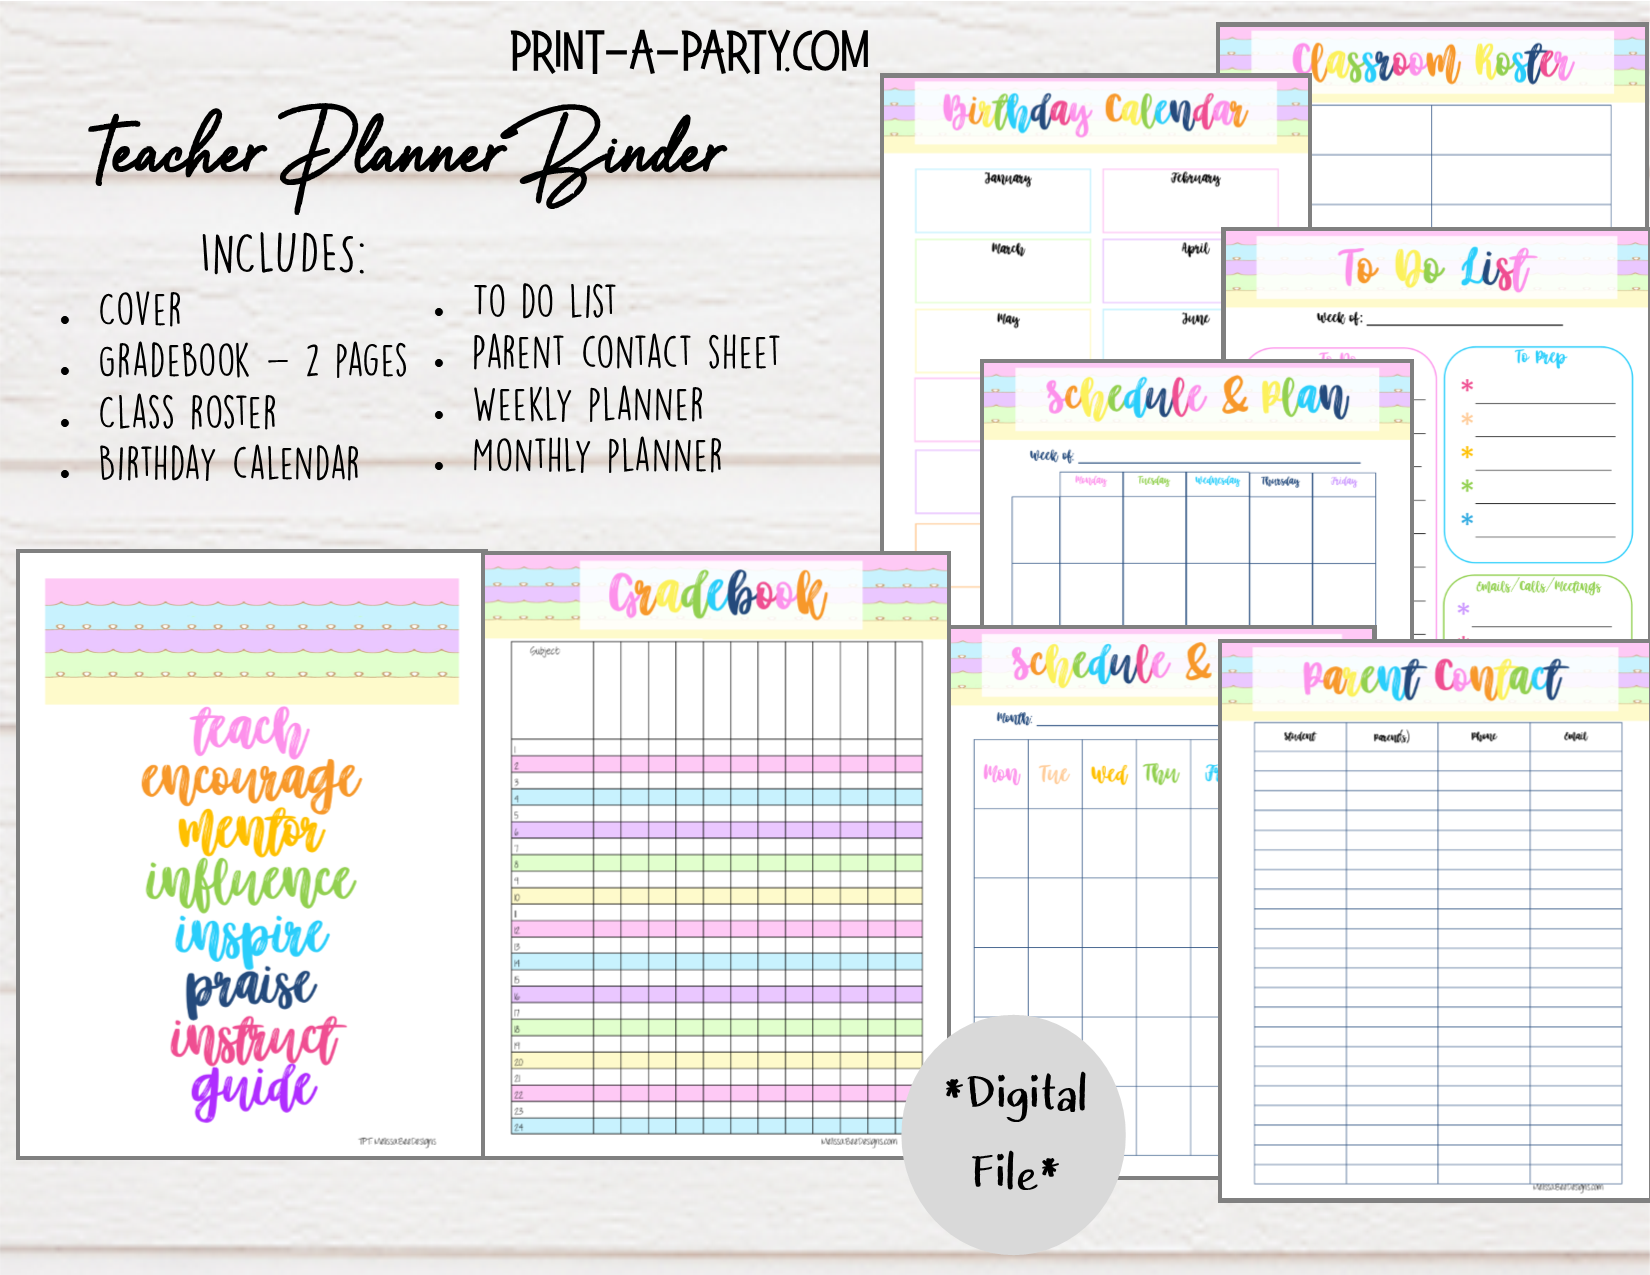 PRINT-A-PARTY.COM
Teacher Planner Binder
INCLUDES:
• COVER
• GRADEBOOK – 2 PAGES
• CLASS ROSTER
• BIRTHDAY CALENDAR
• TO DO LIST
• PARENT CONTACT SHEET
• WEEKLY PLANNER
• MONTHLY PLANNER
Classroom Roster
Birthday Calendar
January
February
March
April
May
June
To Do List
Week of:
To Do
To Prep
*
*
*
*
*
Emails/Calls/Meetings
*
Schedule & Plan
Week of:
Monday Tuesday Wednesday Thursday Friday
teach
encourage
mentor
influence
inspire
praise
instruct
guide
TPT MelissaBeeDesigns
Gradebook
Subject
1
2
3
4
5
6
7
8
9
10
11
12
13
14
15
16
17
18
19
20
21
22
23
24
MelissaBeeDesigns.com
Schedule &
Month:
Mon Tue Wed Thu
Parent Contact
Student Parent(s) Phone Email
MelissaBeeDesigns.com
*Digital
File*